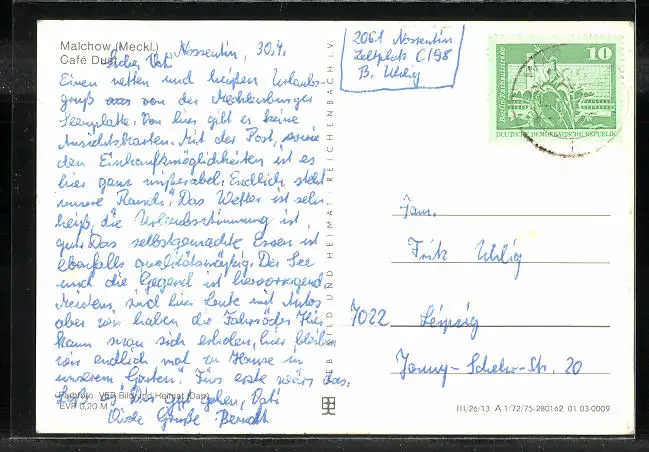 Malchow (Meckl.)
Café Dus
Nossentin, 30.4.
Einen netten und heißen Urlaubs-
gruß aus von der Mecklenburger
Seenplatte. Von hier gibt es keine
Ansichtskarten. Mit der Post, sowie
den Einkaufsmöglichkeiten ist es
hier ganz miserabel. Endlich steht
unsere "Rausch". Das Wetter ist sehr
heiß, die Urlaubsstimmung ist
gut. Das selbstgemachte Essen ist
ebenfalls qualitätsmäßig. Der See
und die Gegend ist hervorragend
Meistens sind hier Leute mit Autos
aber wir haben die Fahrräder. Hier
kann man sich erholen, hier
wir endlich mal zu Hause in
unserem Garten". Fürs erste wärs das.
gehen, Opti
Grüße Berndt
Farbfoto: VEB Bild und Heimat (Dam)
EVP 0,20 M
VEB BILD UND HEIMAT REICHENBACH i. V.
2061 Nossentin
Zeltplatz C/98
B. Uhlig
10
Berlin-Rathausstraße
DEUTSCHE DEMOKRATISCHE REPUBLIK
Fam.
Fritz Uhlig
7022 Leipzig
Jonny-Schehr-Str. 20
III/26/13 A 1/72/75-280162 01 03 0009